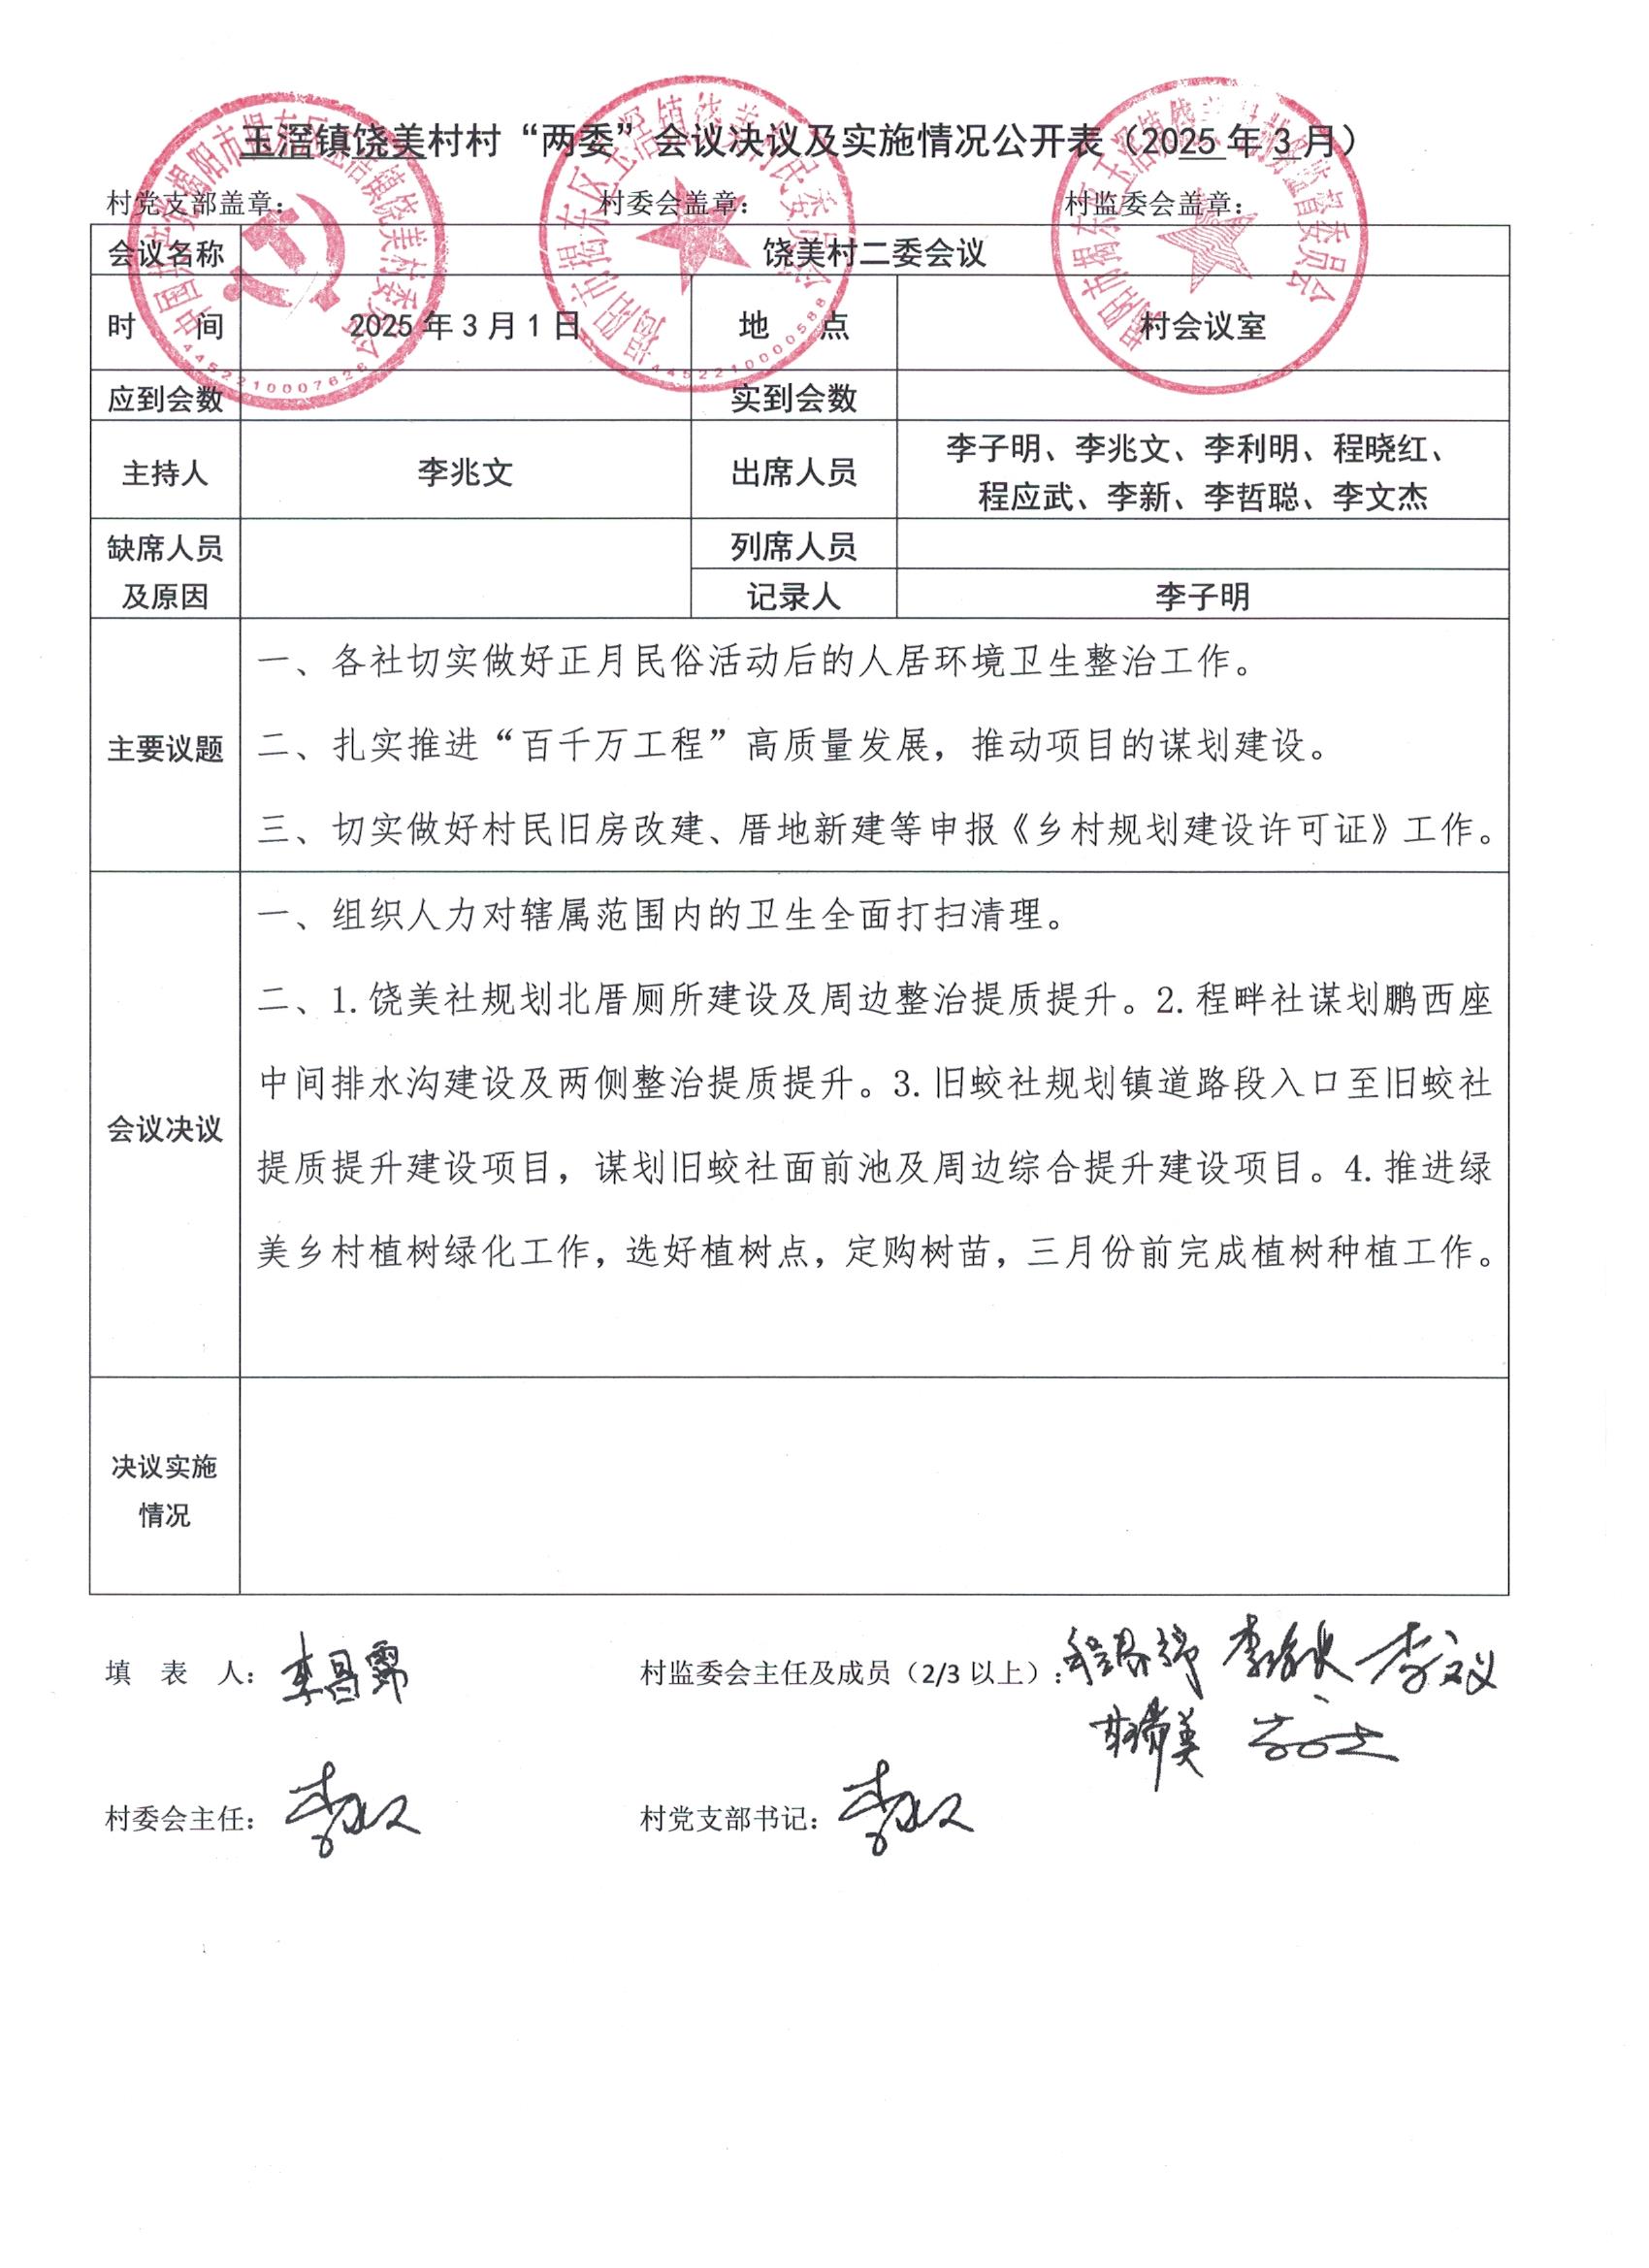 玉滘镇饶美村村“两委”会议决议及实施情况公开表（2025年3月）
村党支部盖章： 村委会盖章： 村监委会盖章：
会议名称 饶美村二委会议
时 间 2025年3月1日 地 点 村会议室
应到会数 实到会数
主持人 李兆文 出席人员 李子明、李兆文、李利明、程晓红、
程应武、李新、李哲聪、李文杰
缺席人员
及原因
列席人员
记录人 李子明
主要议题
一、各社切实做好正月民俗活动后的人居环境卫生整治工作。
二、扎实推进“百千万工程”高质量发展，推动项目的谋划建设。
三、切实做好村民旧房改建、厝地新建等申报《乡村规划建设许可证》工作。
会议决议
一、组织人力对辖属范围内的卫生全面打扫清理。
二、1.饶美社规划北厝厕所建设及周边整治提质提升。2.程畔社谋划鹏西座
中间排水沟建设及两侧整治提质提升。3.旧蛟社规划镇道路段入口至旧蛟社
提质提升建设项目，谋划旧蛟社面前池及周边综合提升建设项目。4.推进绿
美乡村植树绿化工作，选好植树点，定购树苗，三月份前完成植树种植工作。
决议实施
情况
填 表 人： 村监委会主任及成员（2/3以上）： 李文议
村委会主任： 村党支部书记：
中国共产党揭阳市揭东区玉滘镇饶美村委员会
4452210007628
揭阳市揭东区玉滘镇饶美村民委员会
4452210000588
揭阳市揭东区玉滘镇饶美村村务监督委员会